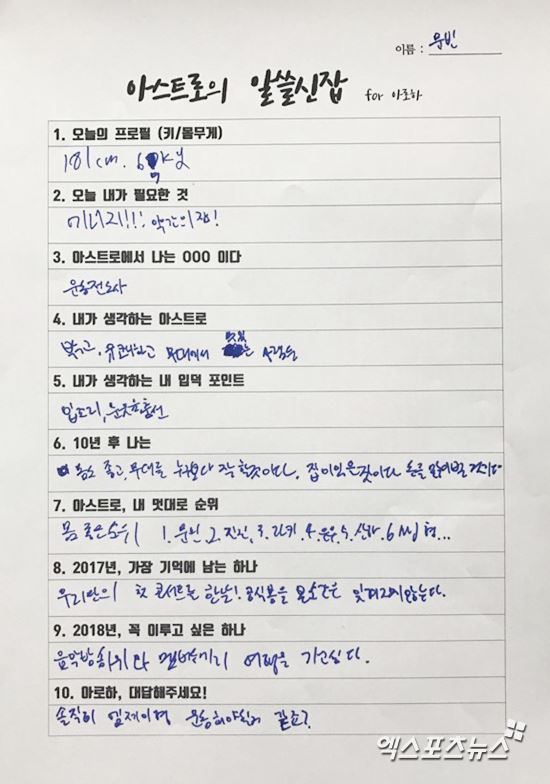 이름 : 문빈
아스트로의 알쓸신잡 for 아로하
1. 오늘의 프로필 (키/몸무게)
181cm. 69kg
2. 오늘 내가 필요한 것
에너지!!! 약간의 잠!
3. 아스트로에서 나는 OOO 이다
운동전도사
4. 내가 생각하는 아스트로
밝고, 유쾌하고 무대에서 멋있는 사람들
5. 내가 생각하는 내 입덕 포인트
입꼬리, 눈웃음
6. 10년 후 나는
몸도 좋고, 무대를 누구보다 잘 할것이다. 집이 있을것이다 돈을 많이 벌 것이다
7. 아스트로, 내 멋대로 순위
몸 좋은순위 1. 문빈, 2. 진진, 3. 라키, 4. 은우, 5. 산하, 6 MJ 형...
8. 2017년, 가장 기억에 남는 하나
우리만의 첫 콘서트를 한날! 공식봉을 본 순간은 잊혀지지않는다.
9. 2018년, 꼭 이루고 싶은 하나
음악방송1위와 멤버끼리 여행을 가고싶다.
10. 아로하, 대답해주세요!
솔직히 엠제이형 운동해야될거 같죠?
엑스포츠뉴스